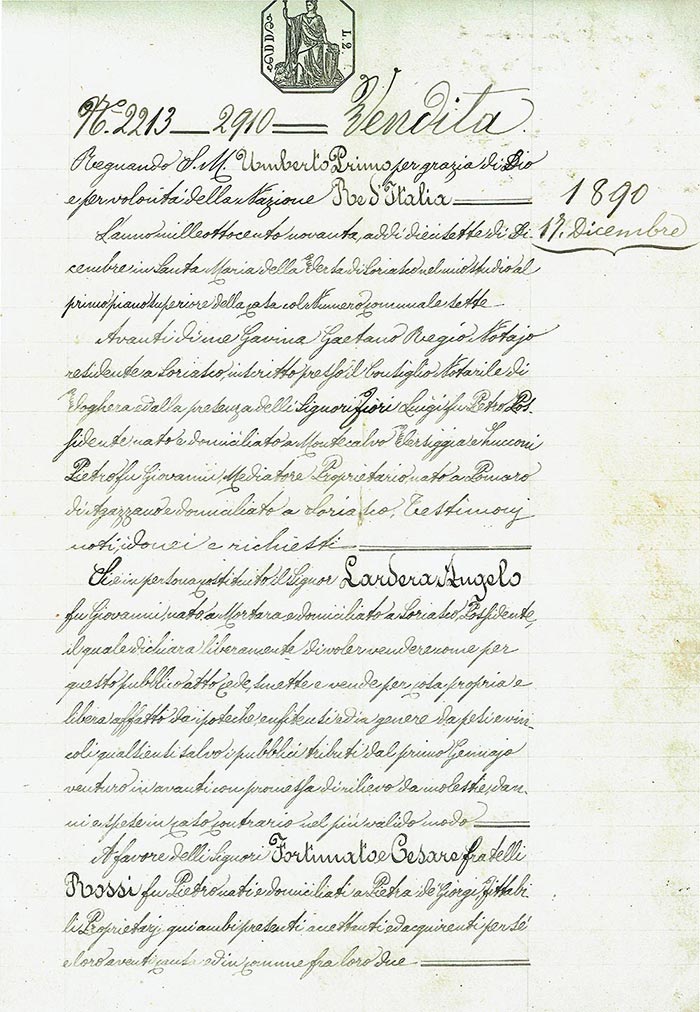 L. 2.
N.° 2213 — 2910 — Vendita.
Regnando S. M. Umberto Primo per grazia di Dio
e per volontà della Nazione Re d'Italia
1890
17. Dicembre
L'anno milleottocento novanta, addì diciasette di Di
cembre in Santa Maria della Versa di Soriasco nel mio studio al
primo piano superiore della casa col Numero comunale sette
Avanti di me Gavina Gaetano Regio Notajo
residente a Soriasco, inscritto presso il Consiglio Notarile di
Voghera ed alla presenza delli Signori Fiori Luigi fu Pietro Pos-
sidente nato e domiciliato a Montecalvo Versiggia e Zucconi
Pietro fu Giovanni, Mediatore Proprietario nato a Pomaro
di Agazzano e domiciliato a Soriasco, Testimonj
noti, idonei e richiesti
Si è in persona costituito il Signor Lardera Angelo
fu Giovanni, nato a Mortara e domiciliato a Soriasco, Possidente,
il quale dichiara liberamente di voler vendere come per
questo pubblico atto cede, dimette e vende per cosa propria e
libera affatto da ipoteche, enfiteusi ed in genere da pesi e vin-
coli qualsiensi salvo i pubblici tributi dal primo Gennajo
venturo in avanti con promessa di rilievo da molestie, dan-
ni e spese in caso contrario nel più valido modo
A favore delli Signori Fortunato e Cesare fratelli
Rossi fu Pietro nati e domiciliati a Pietra de' Giorgi, Fittabi-
li Proprietarj qui ambi presenti accettanti ed acquirenti per sé
e loro aventi causa ed in comune fra loro due